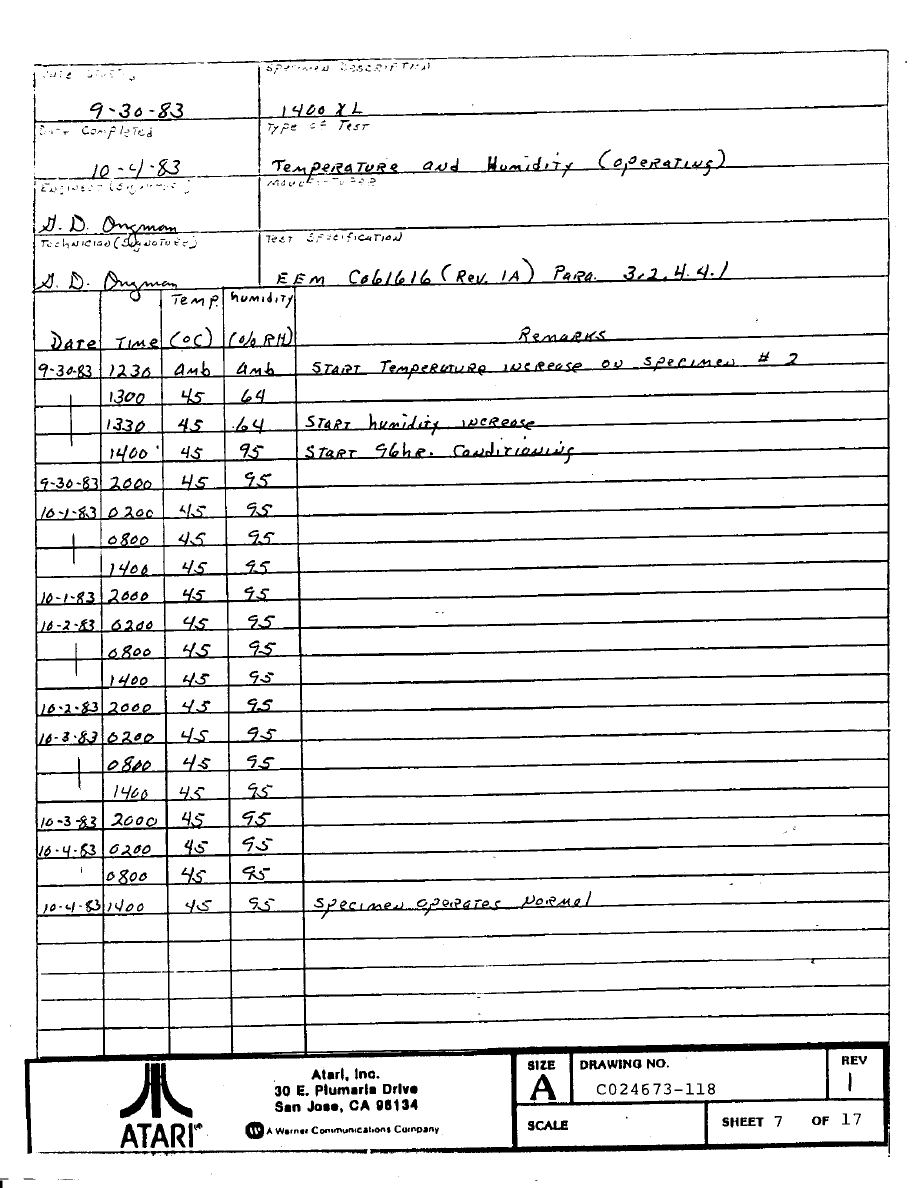 Date Started
Specimen Description
9-30-83
1400 XL
Date Completed
Type of Test
10-4-83
Temperature and Humidity (operating)
Engineer (Signature)
Manufacturer
G. D. Ongman
Technician (Signature)
Test Specification
G. D. Ongman
EEM C061616 (Rev. 1A) Para. 3.2.4.4.1
Date Time Temp (°C) humidity (% RH) Remarks
9-30-83 1230 Amb Amb START Temperature increase on specimen # 2
1300 45 64
1330 45 64 START humidity increase
1400 45 95 START 96hr. Conditioning
9-30-83 2000 45 95
10-1-83 0200 45 95
0800 45 95
1400 45 95
10-1-83 2000 45 95
10-2-83 0200 45 95
0800 45 95
1400 45 95
10-2-83 2000 45 95
10-3-83 0200 45 95
0800 45 95
1400 45 95
10-3-83 2000 45 95
10-4-83 0200 45 95
0800 45 95
10-4-83 1400 45 95 Specimen operates Normal
ATARI®
Atari, Inc.
30 E. Plumeria Drive
San Jose, CA 95134
A Warner Communications Company
SIZE
A
DRAWING NO.
C024673-118
REV
1
SCALE
SHEET 7 OF 17